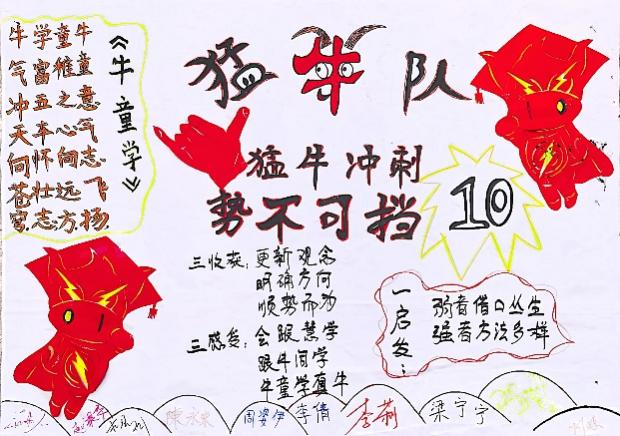 猛牛队
《牛童学》
牛童意气志飞扬
童稚之心向远方
学富五车怀壮志
牛气冲天向苍穹
猛牛冲刺
势不可挡
10
三收获：更新观念
明确方向
顺势而为
三感受：会跟慧学
跟牛闯学
牛童学真牛
一启发：
弱者借口丛生
强者方法多样
周姿伊 李倩 李莉 梁宁宁